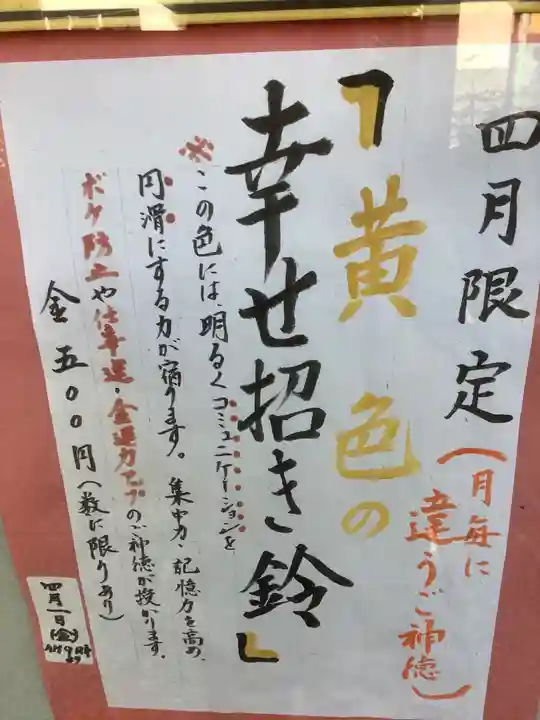 四月限定(月毎に
違うご神徳)
「黄色の
幸せ招き鈴」
※この色には明るくコミュニケーションを
円滑にする力が宿ります。集中力・記憶力を高め、
ボケ防止や仕事運・金運力アップのご神徳が授かります。
金五〇〇円(数に限りあり)
四月一日(金)
AM9時
より